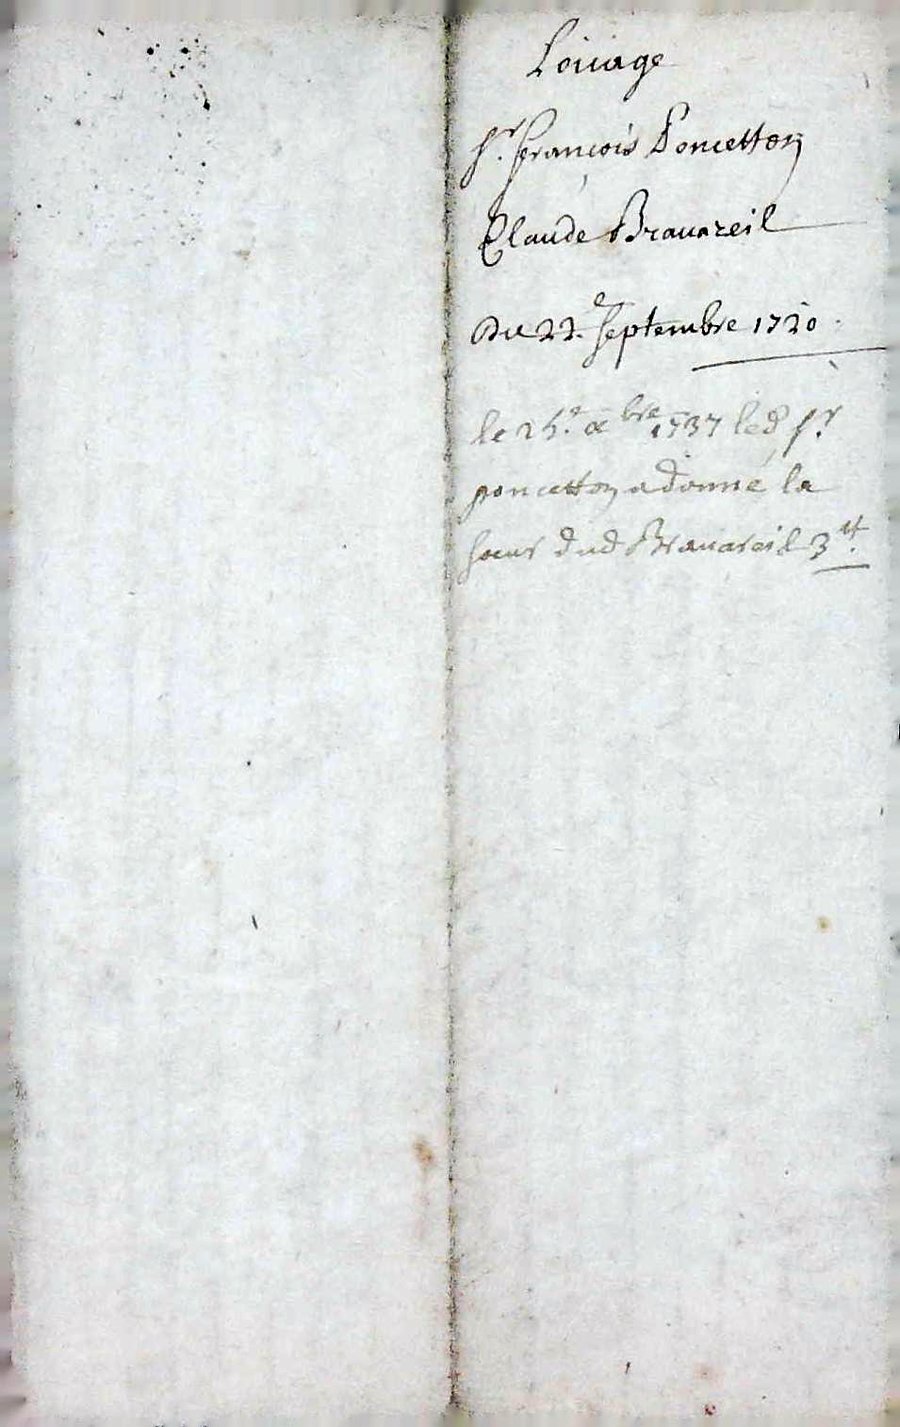 Loüage
Sr. François Poncetton
Claude Brauareil
Du 22e. Septembre 1720
le 25e. Xbre 1737 led Sr.
poncetton a donné la
sœur dud Brauareil 3tt.